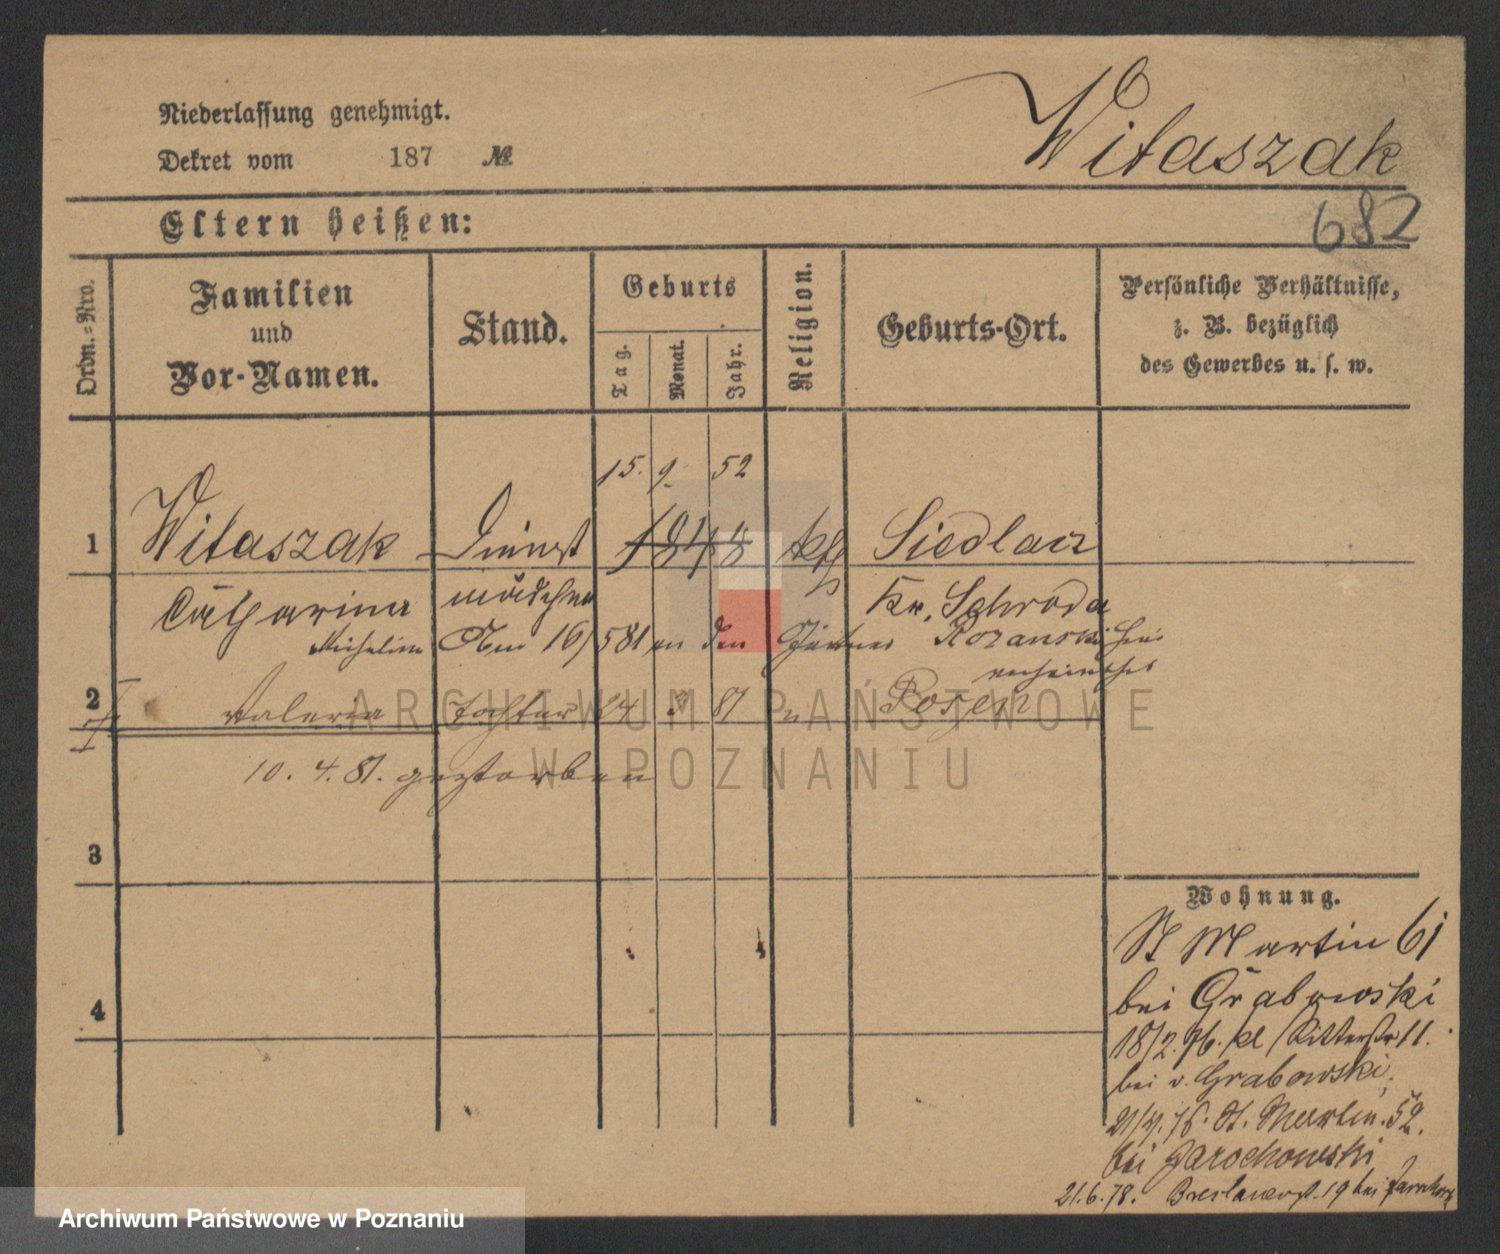 Niederlassung genehmigt.
Dekret vom 187 №
Witaszak
682
Eltern heißen:
Ordn.=Nro.
Familien
und
Vor-Namen.
Stand.
Geburts
Tag.
Monat.
Jahr.
Religion.
Geburts-Ort.
Persönliche Verhältnisse,
z. B. bezüglich
des Gewerbes u. s. w.
15. 9. 52
1 Witaszak Dienst 1848 kth Siedlec
Catharina mädchen Kr. Schroda
Michalina Am 16/5 81 an den Gärtner Rozanski hier
verheirathet
2 Valeria Tochter 24 3 81 Posen
10. 4. 81. gestorben
3
4
Wohnung.
St Martin 61
bei Grabowski
18/2. 76. kl Ritterstr 11.
bei v. Grabowski.
21/4. 76. St. Martin. 52.
bei Jarochowski
21.6.78. Breslauerst. 19 bei
ARCHIWUM PAŃSTWOWE
W POZNANIU
Archiwum Państwowe w Poznaniu